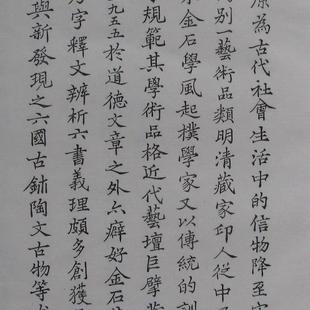 原為古代社會生活中的信物降至宋
別一藝術品類明清藏家印人從中
金石學風起樸學家又以傳統的訓
規範其學術品格近代藝壇巨擘黃
九五五於道德文章之外亦癖好金石
字釋文辨析六書義理頗多創獲
與新發現之六國古鉨陶文古物等